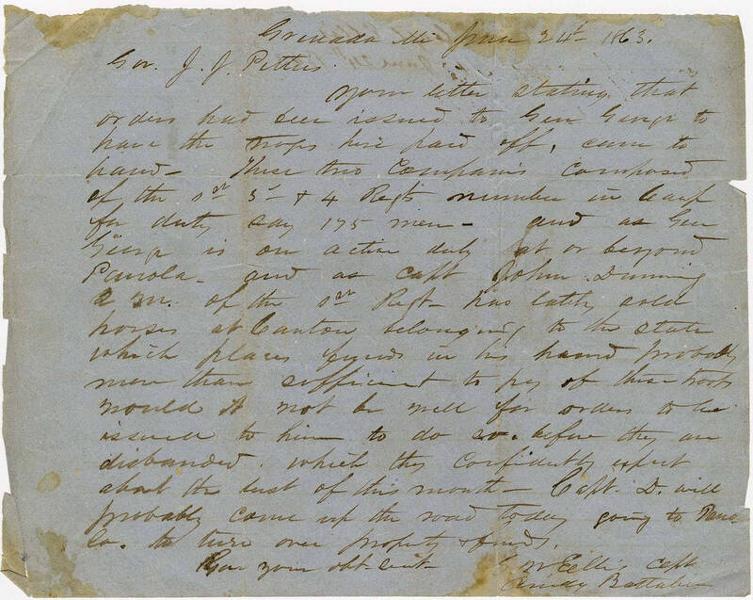 Grenada Mi June 24th 1863.
Gov. J. J. Pettus.
Your letter stating that
orders had been issued to Gen George to
have the troops here paid off, came to
hand - These two Companies composed
of the 1st 3d & 4 Regts number in camp
for duty say 175 men - and as Gen
George is on active duty at or beyond
Panola - and as Capt John Dunning
2 M. of the 1st Regt - has lately sold
horses at Canton belonging to the state
which places funds in his hand probably
more than sufficient to pay of these troops
would it not be well for orders to be
issued to him to do so. before they are
disbanded. which they confidently expect
about the last of this month - Capt. D. will
probably come up the road today going to
Co. to turn over property & funds.
your obt Servt
Ellis Capt
Battalion